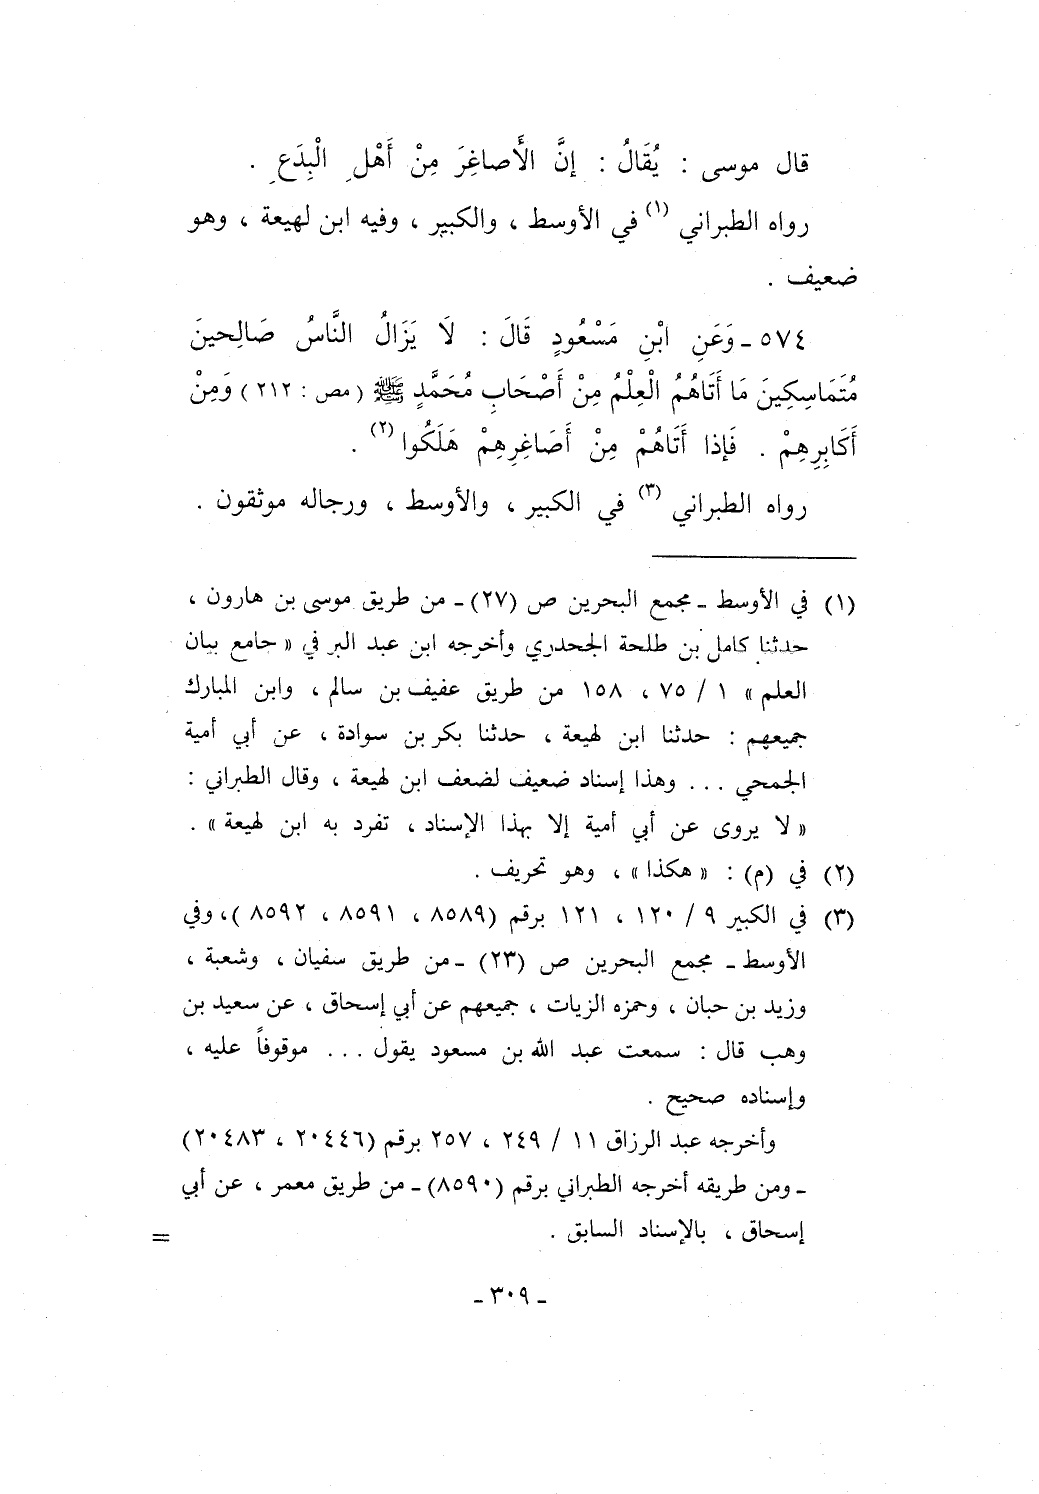 قال موسى : يُقَالُ : إنَّ الْأَصاغِرَ مِنْ أَهْلِ الْبِدَعِ .
رواه الطبراني (١) في الأوسط ، والكبير ، وفيه ابن لهيعة ، وهو
ضعيف .
٥٧٤ ـ وَعَنِ ابْنِ مَسْعُودٍ قَالَ : لَا يَزَالُ النَّاسُ صَالِحينَ
مُتَمَاسِكِينَ مَا أَتَاهُمُ الْعِلْمُ مِنْ أَصْحَابِ مُحَمَّدٍ ﷺ ( مص : ٢١٢ ) وَمِنْ
أَكَابِرِهِمْ . فَإذا أَتَاهُمْ مِنْ أَصَاغِرِهِمْ هَلَكُوا (٢) .
رواه الطبراني (٣) في الكبير ، والأوسط ، ورجاله موثقون .
(١) في الأوسط ـ مجمع البحرين ص (٢٧) ـ من طريق موسى بن هارون ،
حدثنا كامل بن طلحة الجحدري وأخرجه ابن عبد البر في « جامع بيان
العلم » ١ / ٧٥ ، ١٥٨ من طريق عفيف بن سالم ، وابن المبارك
جميعهم : حدثنا ابن لهيعة ، حدثنا بكر بن سوادة ، عن أبي أمية
الجمحي ... وهذا إسناد ضعيف لضعف ابن لهيعة ، وقال الطبراني :
« لا يروى عن أبي أمية إلا بهذا الإسناد ، تفرد به ابن لهيعة » .
(٢) في (م) : « هكذا » ، وهو تحريف .
(٣) في الكبير ٩ / ١٢٠ ، ١٢١ برقم (٨٥٨٩ ، ٨٥٩١ ، ٨٥٩٢ )، وفي
الأوسط ـ مجمع البحرين ص (٢٣) ـ من طريق سفيان ، وشعبة ،
وزيد بن حبان ، وحمزه الزيات ، جميعهم عن أبي إسحاق ، عن سعيد بن
وهب قال : سمعت عبد الله بن مسعود يقول ... موقوفاً عليه ،
وإسناده صحيح .
وأخرجه عبد الرزاق ١١ / ٢٤٩ ، ٢٥٧ برقم (٢٠٤٤٦ ، ٢٠٤٨٣)
ـ ومن طريقه أخرجه الطبراني برقم (٨٥٩٠) ـ من طريق معمر ، عن أبي
إسحاق ، بالإسناد السابق .
=
ـ ٣٠٩ ـ